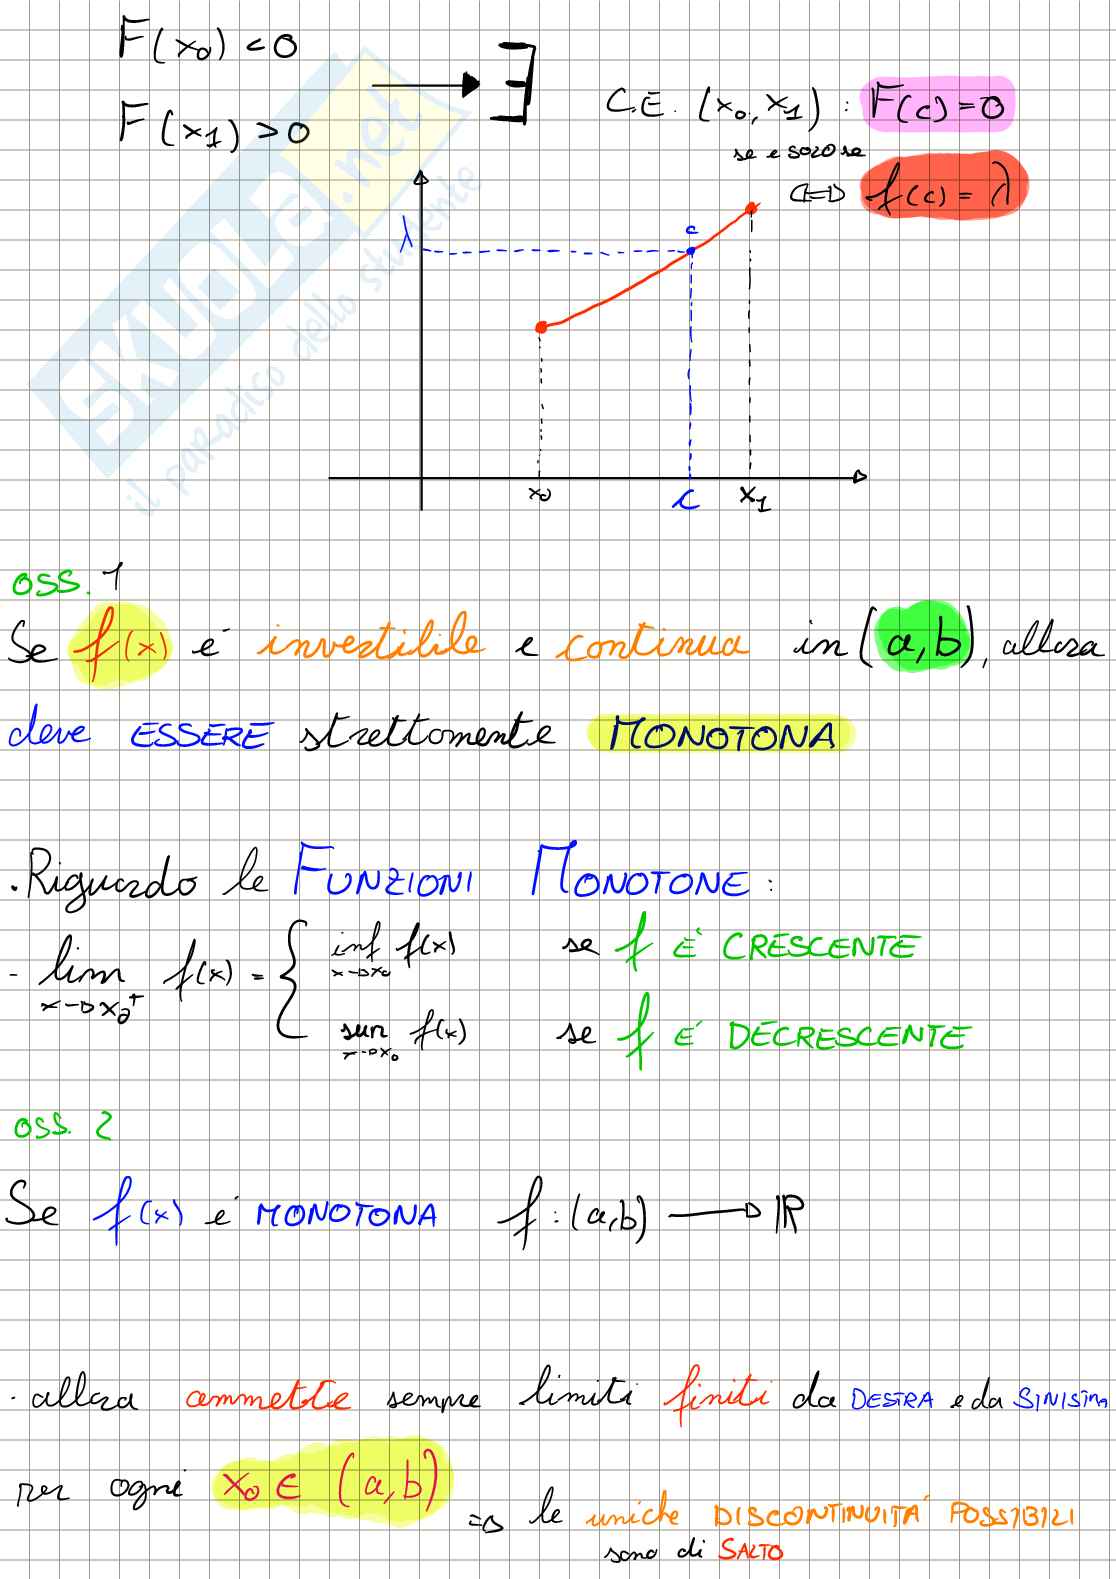 F(x₀) < 0
F(x₁) > 0
∃ C.E. (x₀, x₁) : F(c) = 0
se e solo se
⇔ f(c) = λ
λ
c
x₀
c
x₁
SKUOLA.net
il paradico dello studente
OSS. 1
Se f(x) é invertilile e continua in (a,b), allora
deve ESSERE strettomente MONOTONA
. Riguardo le FUNZIONI MONOTONE :
- lim x→x₀⁺ f(x) = { inf x→x₀ f(x) se f É CRESCENTE
sup x→x₀ f(x) se f É DECRESCENTE
OSS. 2
Se f(x) é MONOTONA f : (a,b) → ℝ
. allora ammette sempre limiti finiti da DESTRA e da SINISTRA
per ogni x₀ ∈ (a,b)
⇒ le uniche DISCONTINUITÁ POSSIBILI
sono di SALTO